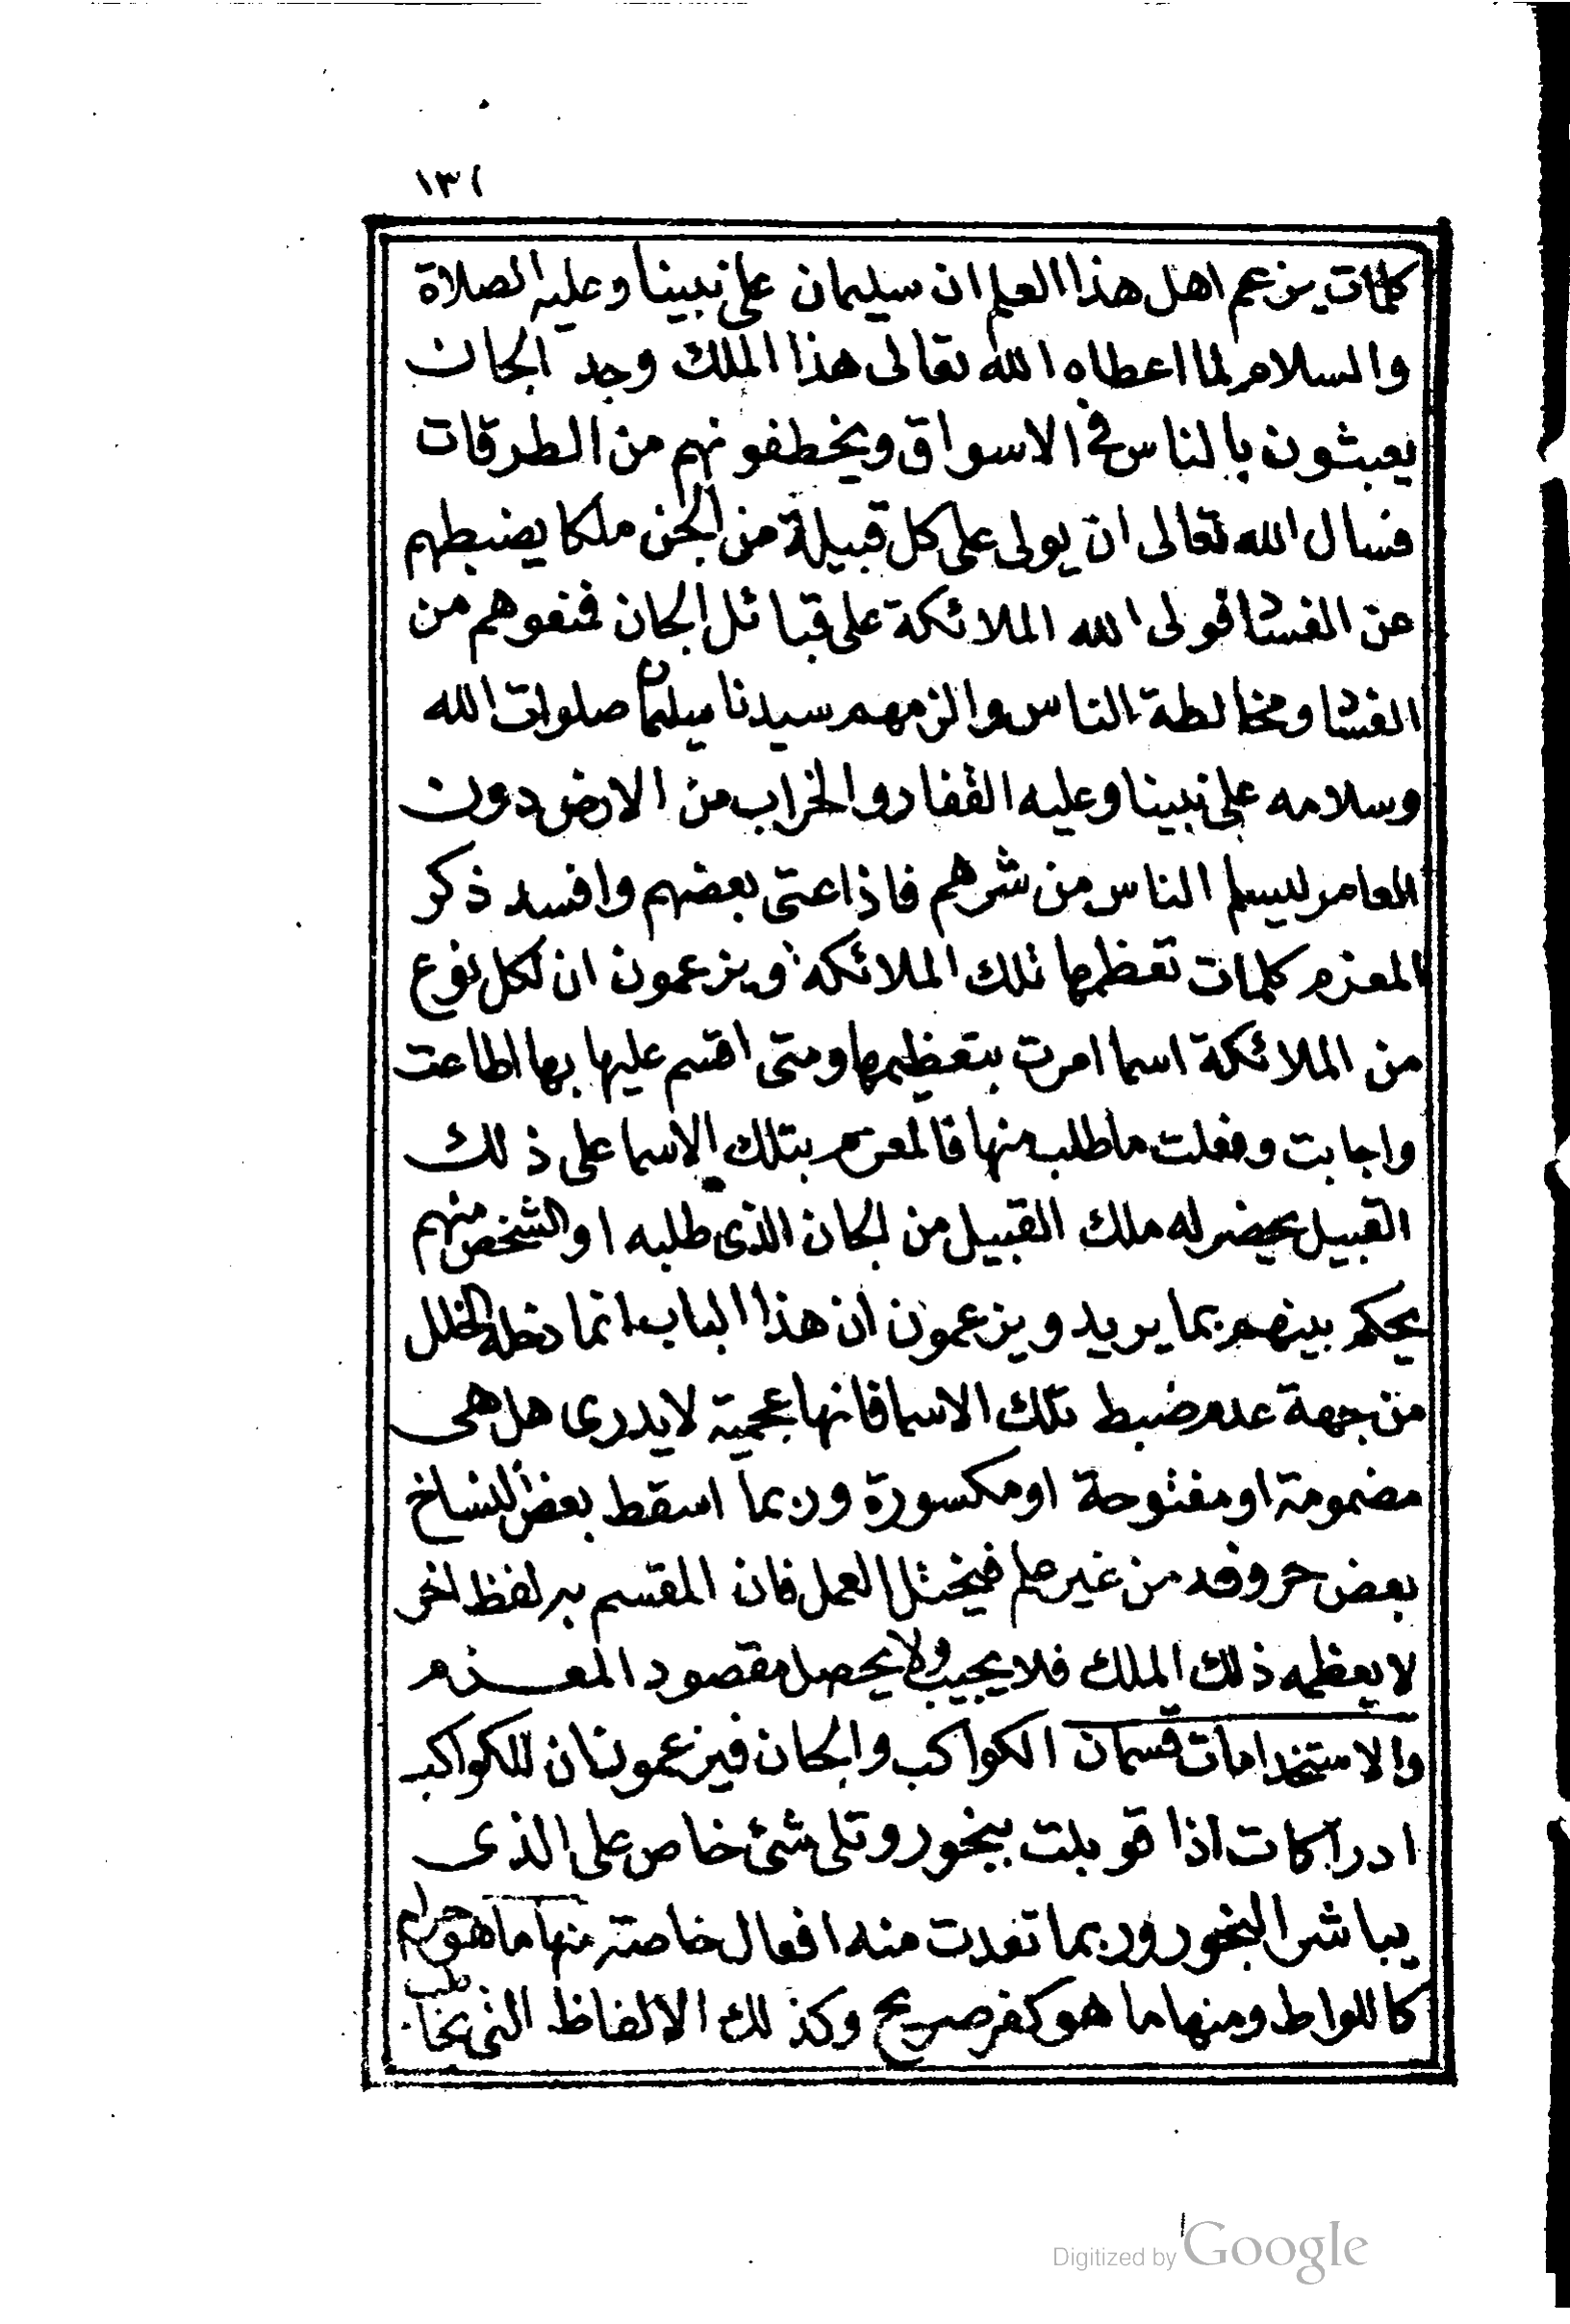 ١٣٢
كلمات يزعم اهل هذا العلم ان سليمان على نبينا وعليه الصلاة
والسلام لما اعطاه الله تعالى هذا الملك وجد الجان
يعبثون بالناس في الاسواق ويخطفونهم من الطرقات
فسال الله تعالى ان يولى على كل قبيلة من الجن ملكا يضبطهم
عن الفساد فولى الله الملائكة على قبائل الجان فمنعوهم من
الفساد ومخالطة الناس والزمهم سيدنا سليمان صلوات الله
وسلامه على نبينا وعليه القفار والخراب من الارض دون
العامر ليسلم الناس من شرهم فاذا عتى بعضهم وافسد ذكر
المعزم كلمات تعظمها تلك الملائكة ويزعمون ان لكل نوع
من الملائكة اسما امرت بتعظيمها ومتى اقسم عليها بها اطاعت
واجابت وفعلت ما طلب منها فالمعزم بتلك الاسما على ذلك
القبيل يحضر له ملك القبيل من الجان الذى طلبه او الشخص منهم
يحكم بينهم بما يريد ويزعمون ان هذا الباب انما دخله الخلل
من جهة عدم ضبط تلك الاسما فانها عجمية لا يدرى هل هى
مضمومة او مفتوحة او مكسورة وربما اسقط بعض النساخ
بعض حروفه من غير علم فيختل العمل فان المقسم به لفظ اخر
لا يعظمه ذلك الملك فلا يجيب ولا يحصل مقصود المعزم
والاستخدامات قسمان الكواكب والجان فيزعمون ان للكواكب
ادراكات اذا قوبلت ببخور وتلى شئ خاص على الذى
يباشر البخور وربما تقدت منه افعال خاصة منها ما هو حرام
كاللواط ومنها ما هو كفر صريح وكذلك الالفاظ التى يخاطب
Digitized by Google